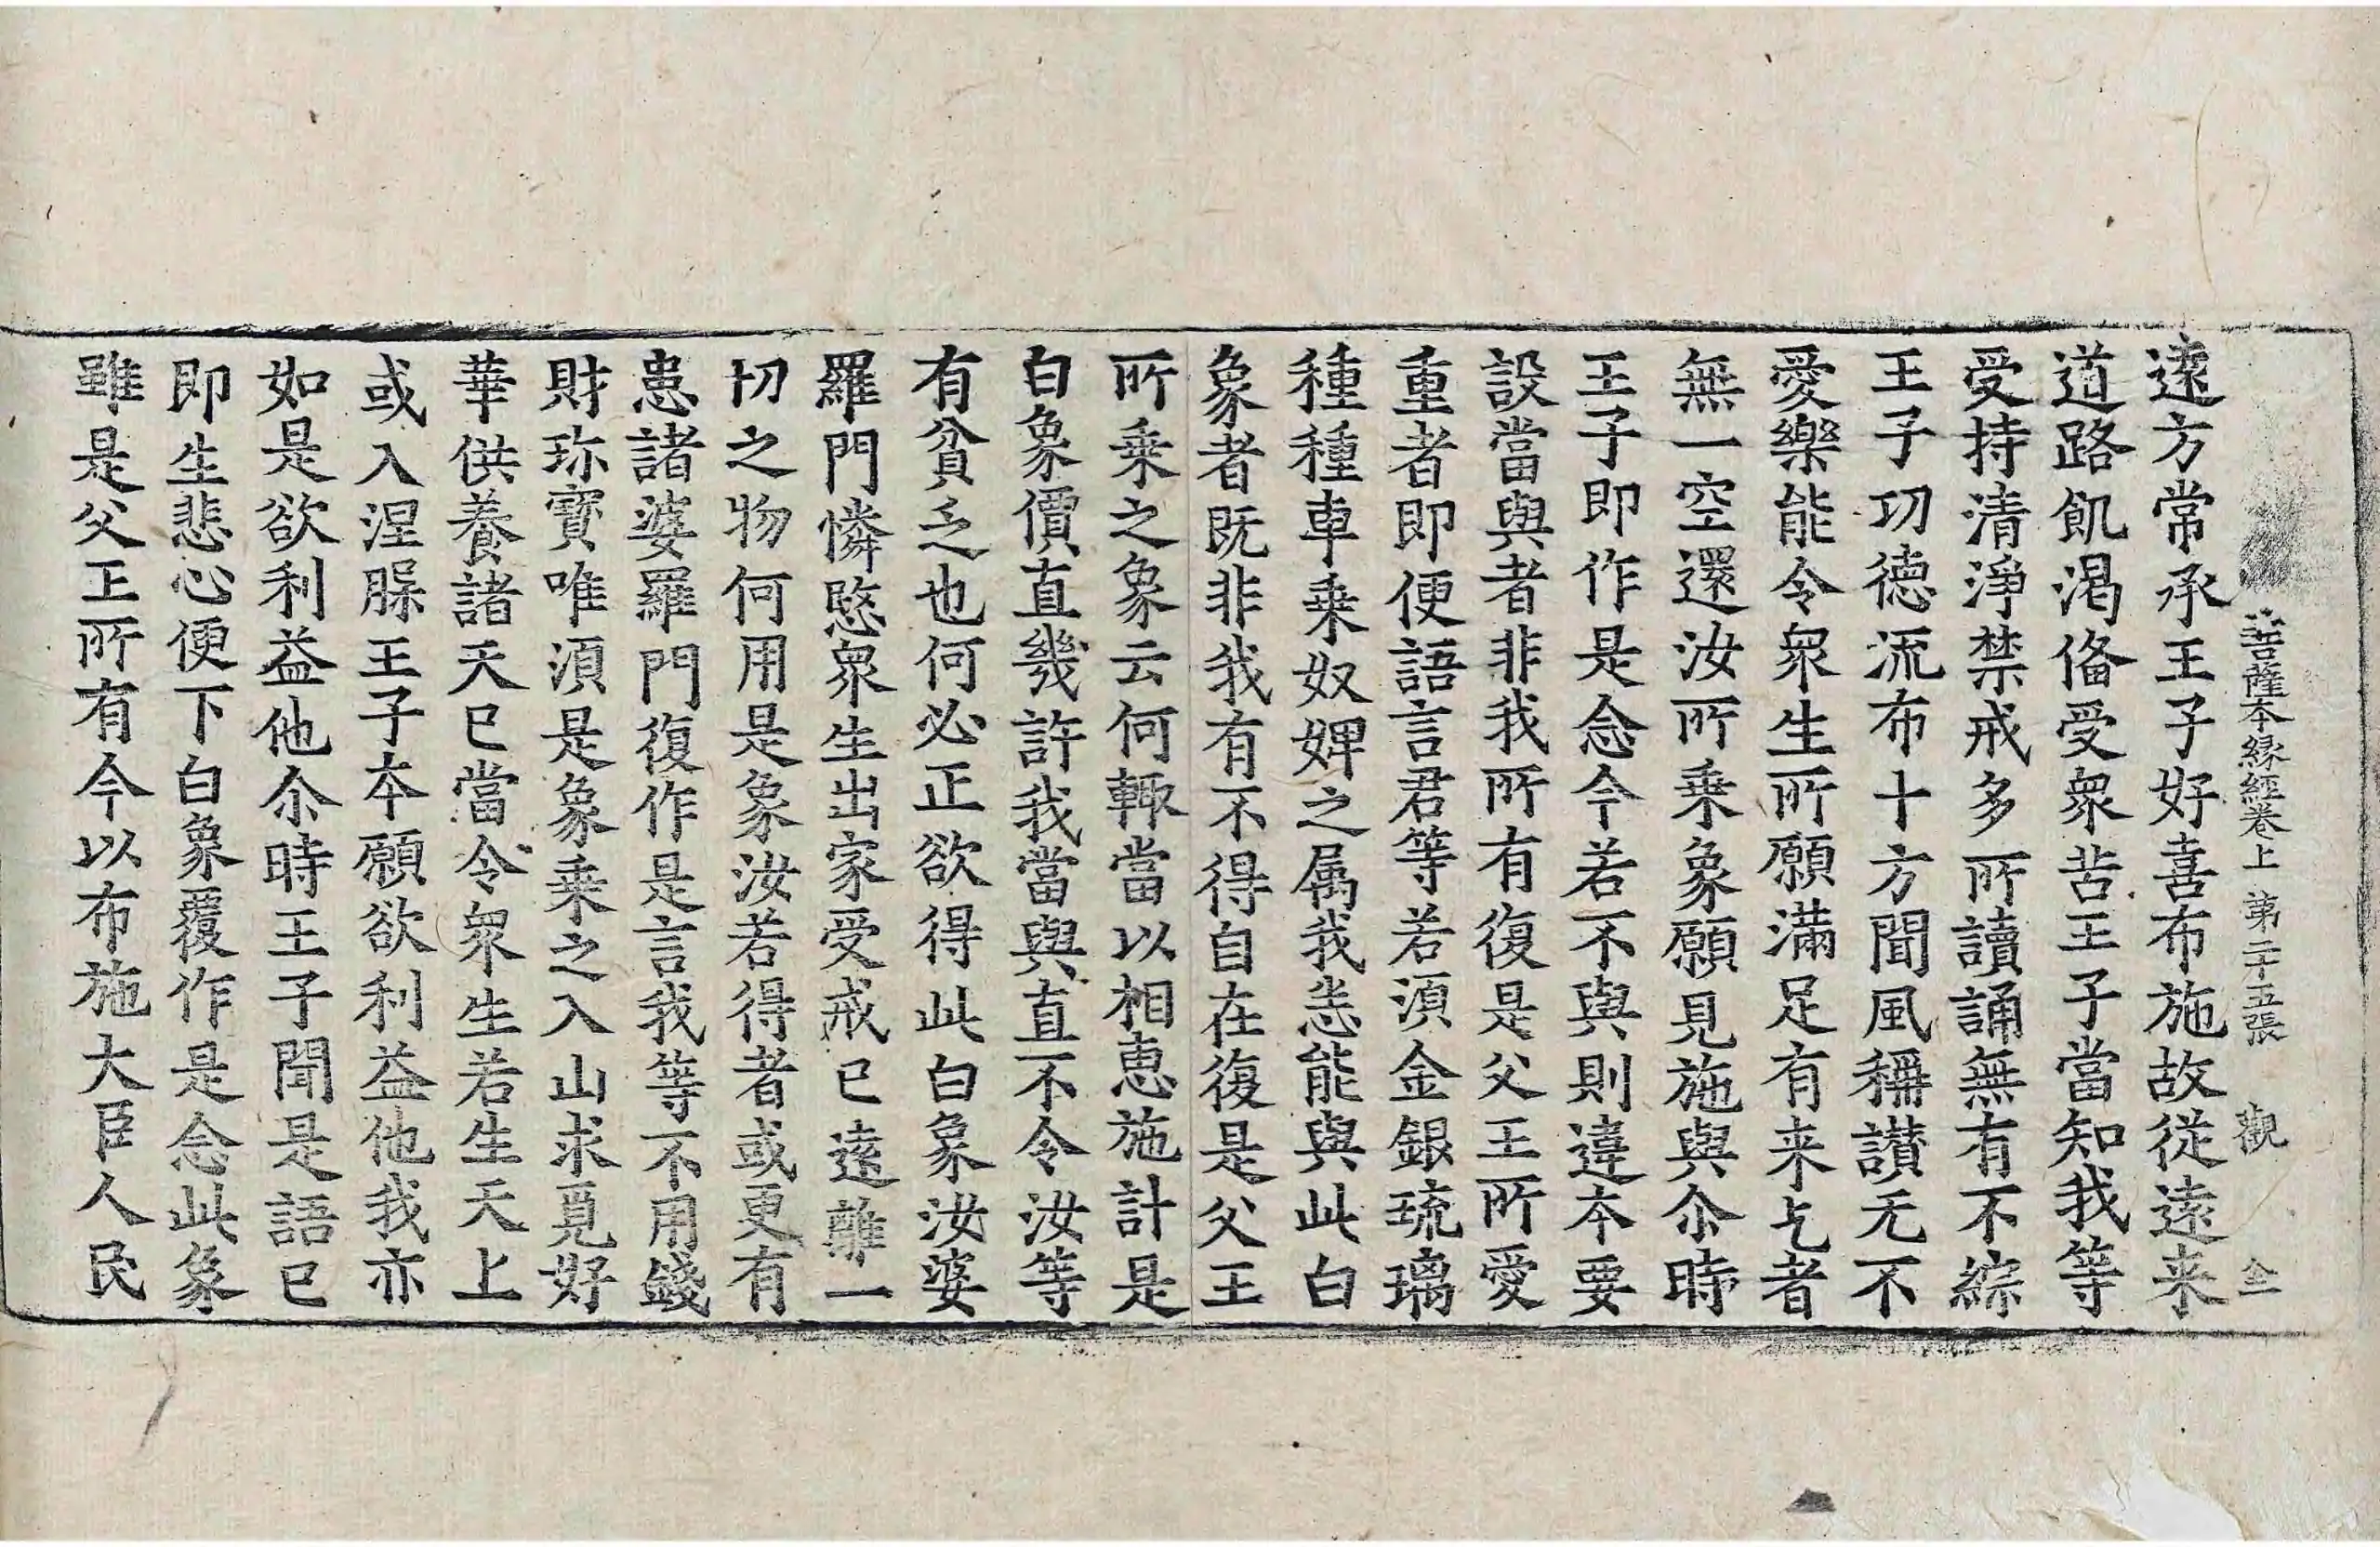 菩薩本縁經卷上 第二十五張 觀 仝
遠方常承王子好喜布施故從遠来
道路飢渴俻受衆苦王子當知我等
受持清淨禁戒多所讀誦無有不綜
王子功德流布十方聞風稱讃无不
愛樂能令衆生所願滿足有来乞者
無一空還汝所乗象願見施與尒時
王子即作是念今若不與則違本要
設當與者非我所有復是父王所愛
重者即便語言君等若須金銀琉璃
種種車乗奴婢之属我悉能與此白
象者既非我有不得自在復是父王
所乗之象云何輙當以相惠施計是
白象價直幾許我當與直不令汝等
有貧乏也何必正欲得此白象汝婆
羅門憐愍衆生出家受戒已遠離一
切之物何用是象汝若得者或更有
患諸婆羅門復作是言我等不用錢
財珎寶唯須是象乗之入山求覓好
華供養諸天已當令衆生若生天上
或入涅槃王子本願欲利益他我亦
如是欲利益他尒時王子聞是語已
即生悲心便下白象覆作是念此象
雖是父王所有今以布施大臣人民